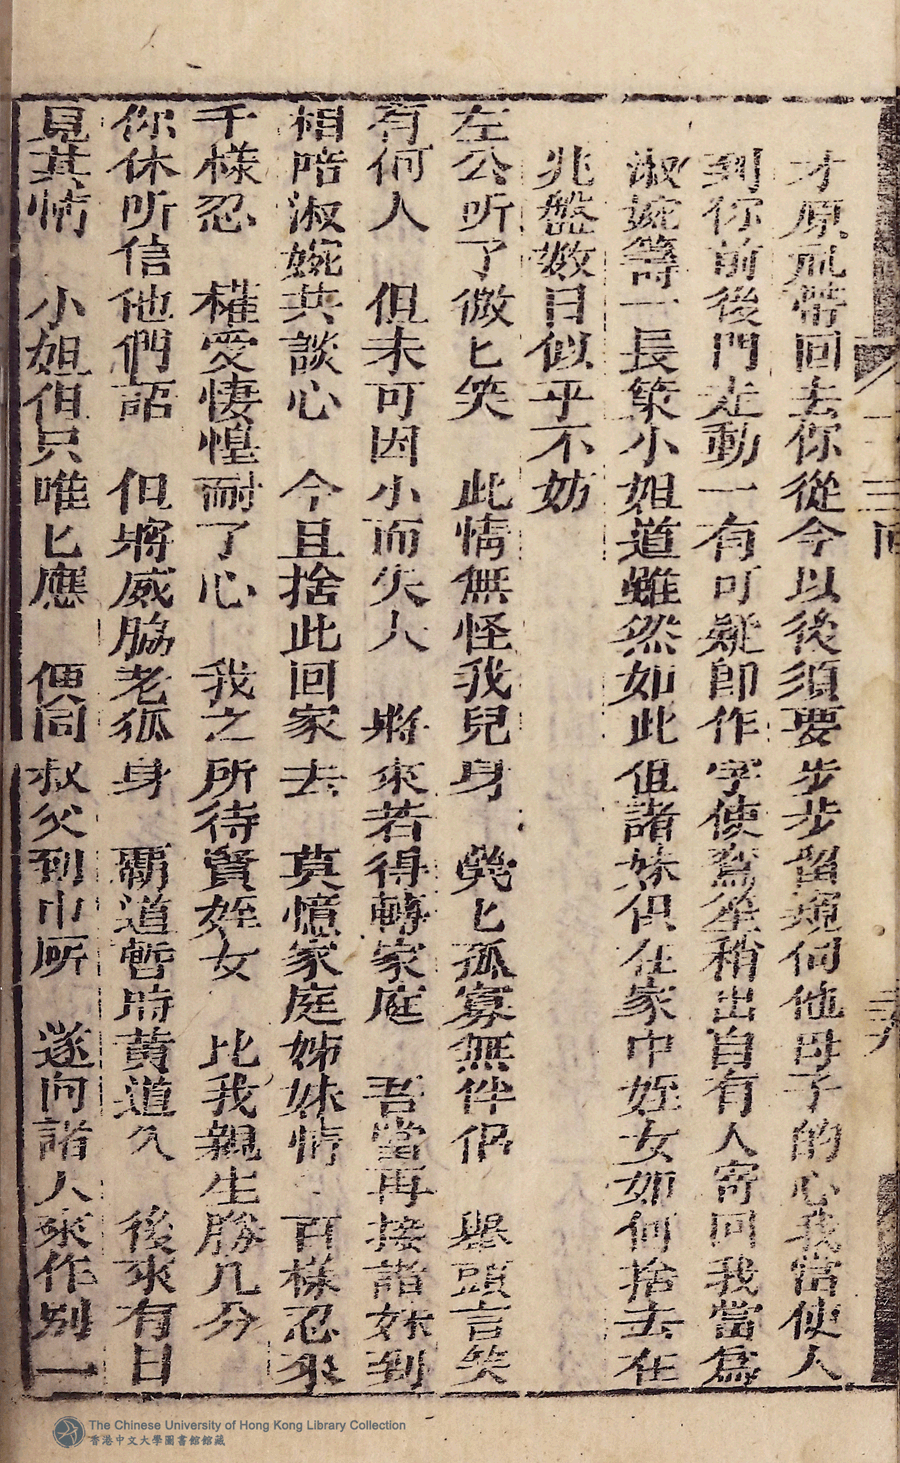 三回
才原礼帶回去你從今以後須要步步留窺伺他母子的心我當使人
到你前後門走動一有可疑即作字使鴛奎稍出自有人寄回我當爲
淑婉籌一長策小姐道雖然如此但諸妹俱在家中姪女如何捨去在
兆盤数日似乎不妨
左公听了微匕笑 此情無怪我兒身 煢匕孤寡無伴侶 舉頭言笑
有何人 但未可因小而失人 將來若得轉家庭 吾當再接諸妹到
相陪淑婉共談心 今且捨此回家去 莫憶家庭姊妹情 百樣忍來
千樣忍 權愛悽惶耐了心 我之所待賢姪女 比我親生勝几分
你休听信他們詔 但將威脇老狐身 覇道暫時黄道久 後來有日
見其情 小姐但只唯匕應 便同叔父到中所 遂向諸人來作别 一
The Chinese University of Hong Kong Library Collection
香港中文大學圖書館館藏